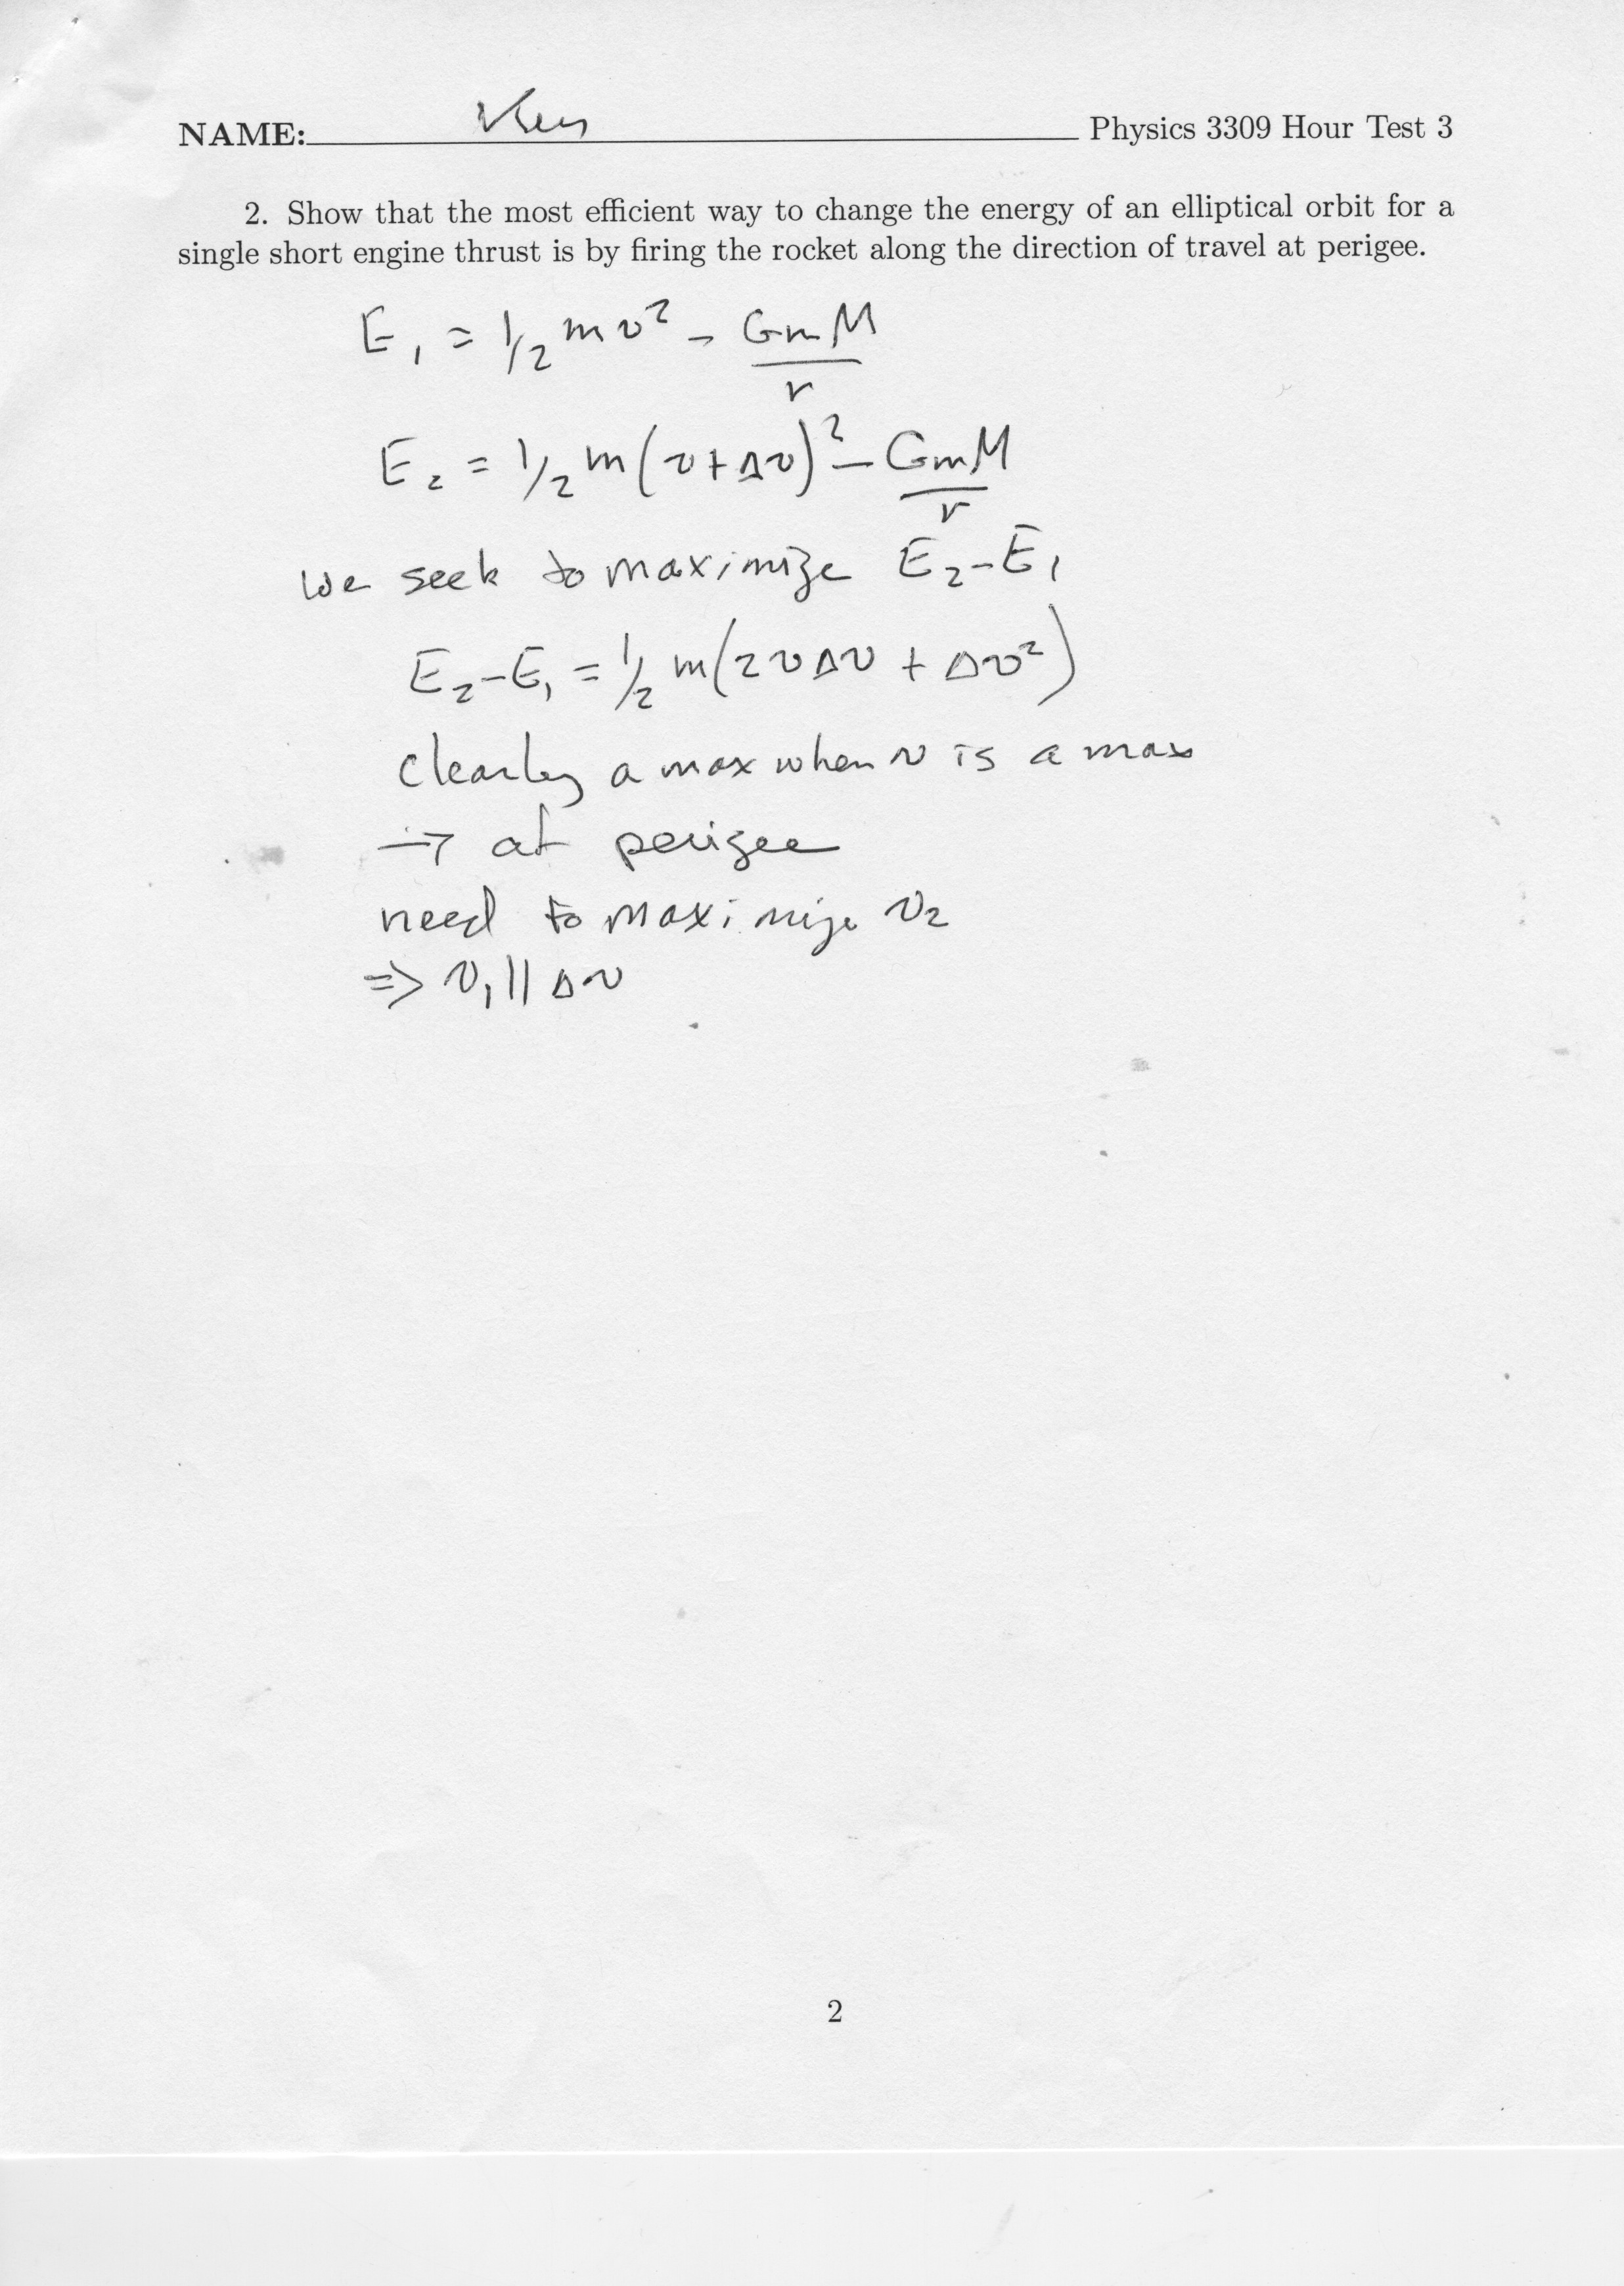 NAME: Key Physics 3309 Hour Test 3
2. Show that the most efficient way to change the energy of an elliptical orbit for a
single short engine thrust is by firing the rocket along the direction of travel at perigee.
E₁ = 1/2 mv² - GmM/r
E₂ = 1/2 m(v+Δv)² - GmM/r
we seek to maximize E₂-E₁
E₂-E₁ = 1/2 m(2vΔv + Δv²)
clearly a max when v is a max
→ at perigee
need to maximize v₂
⇒ v₁ || Δv
2